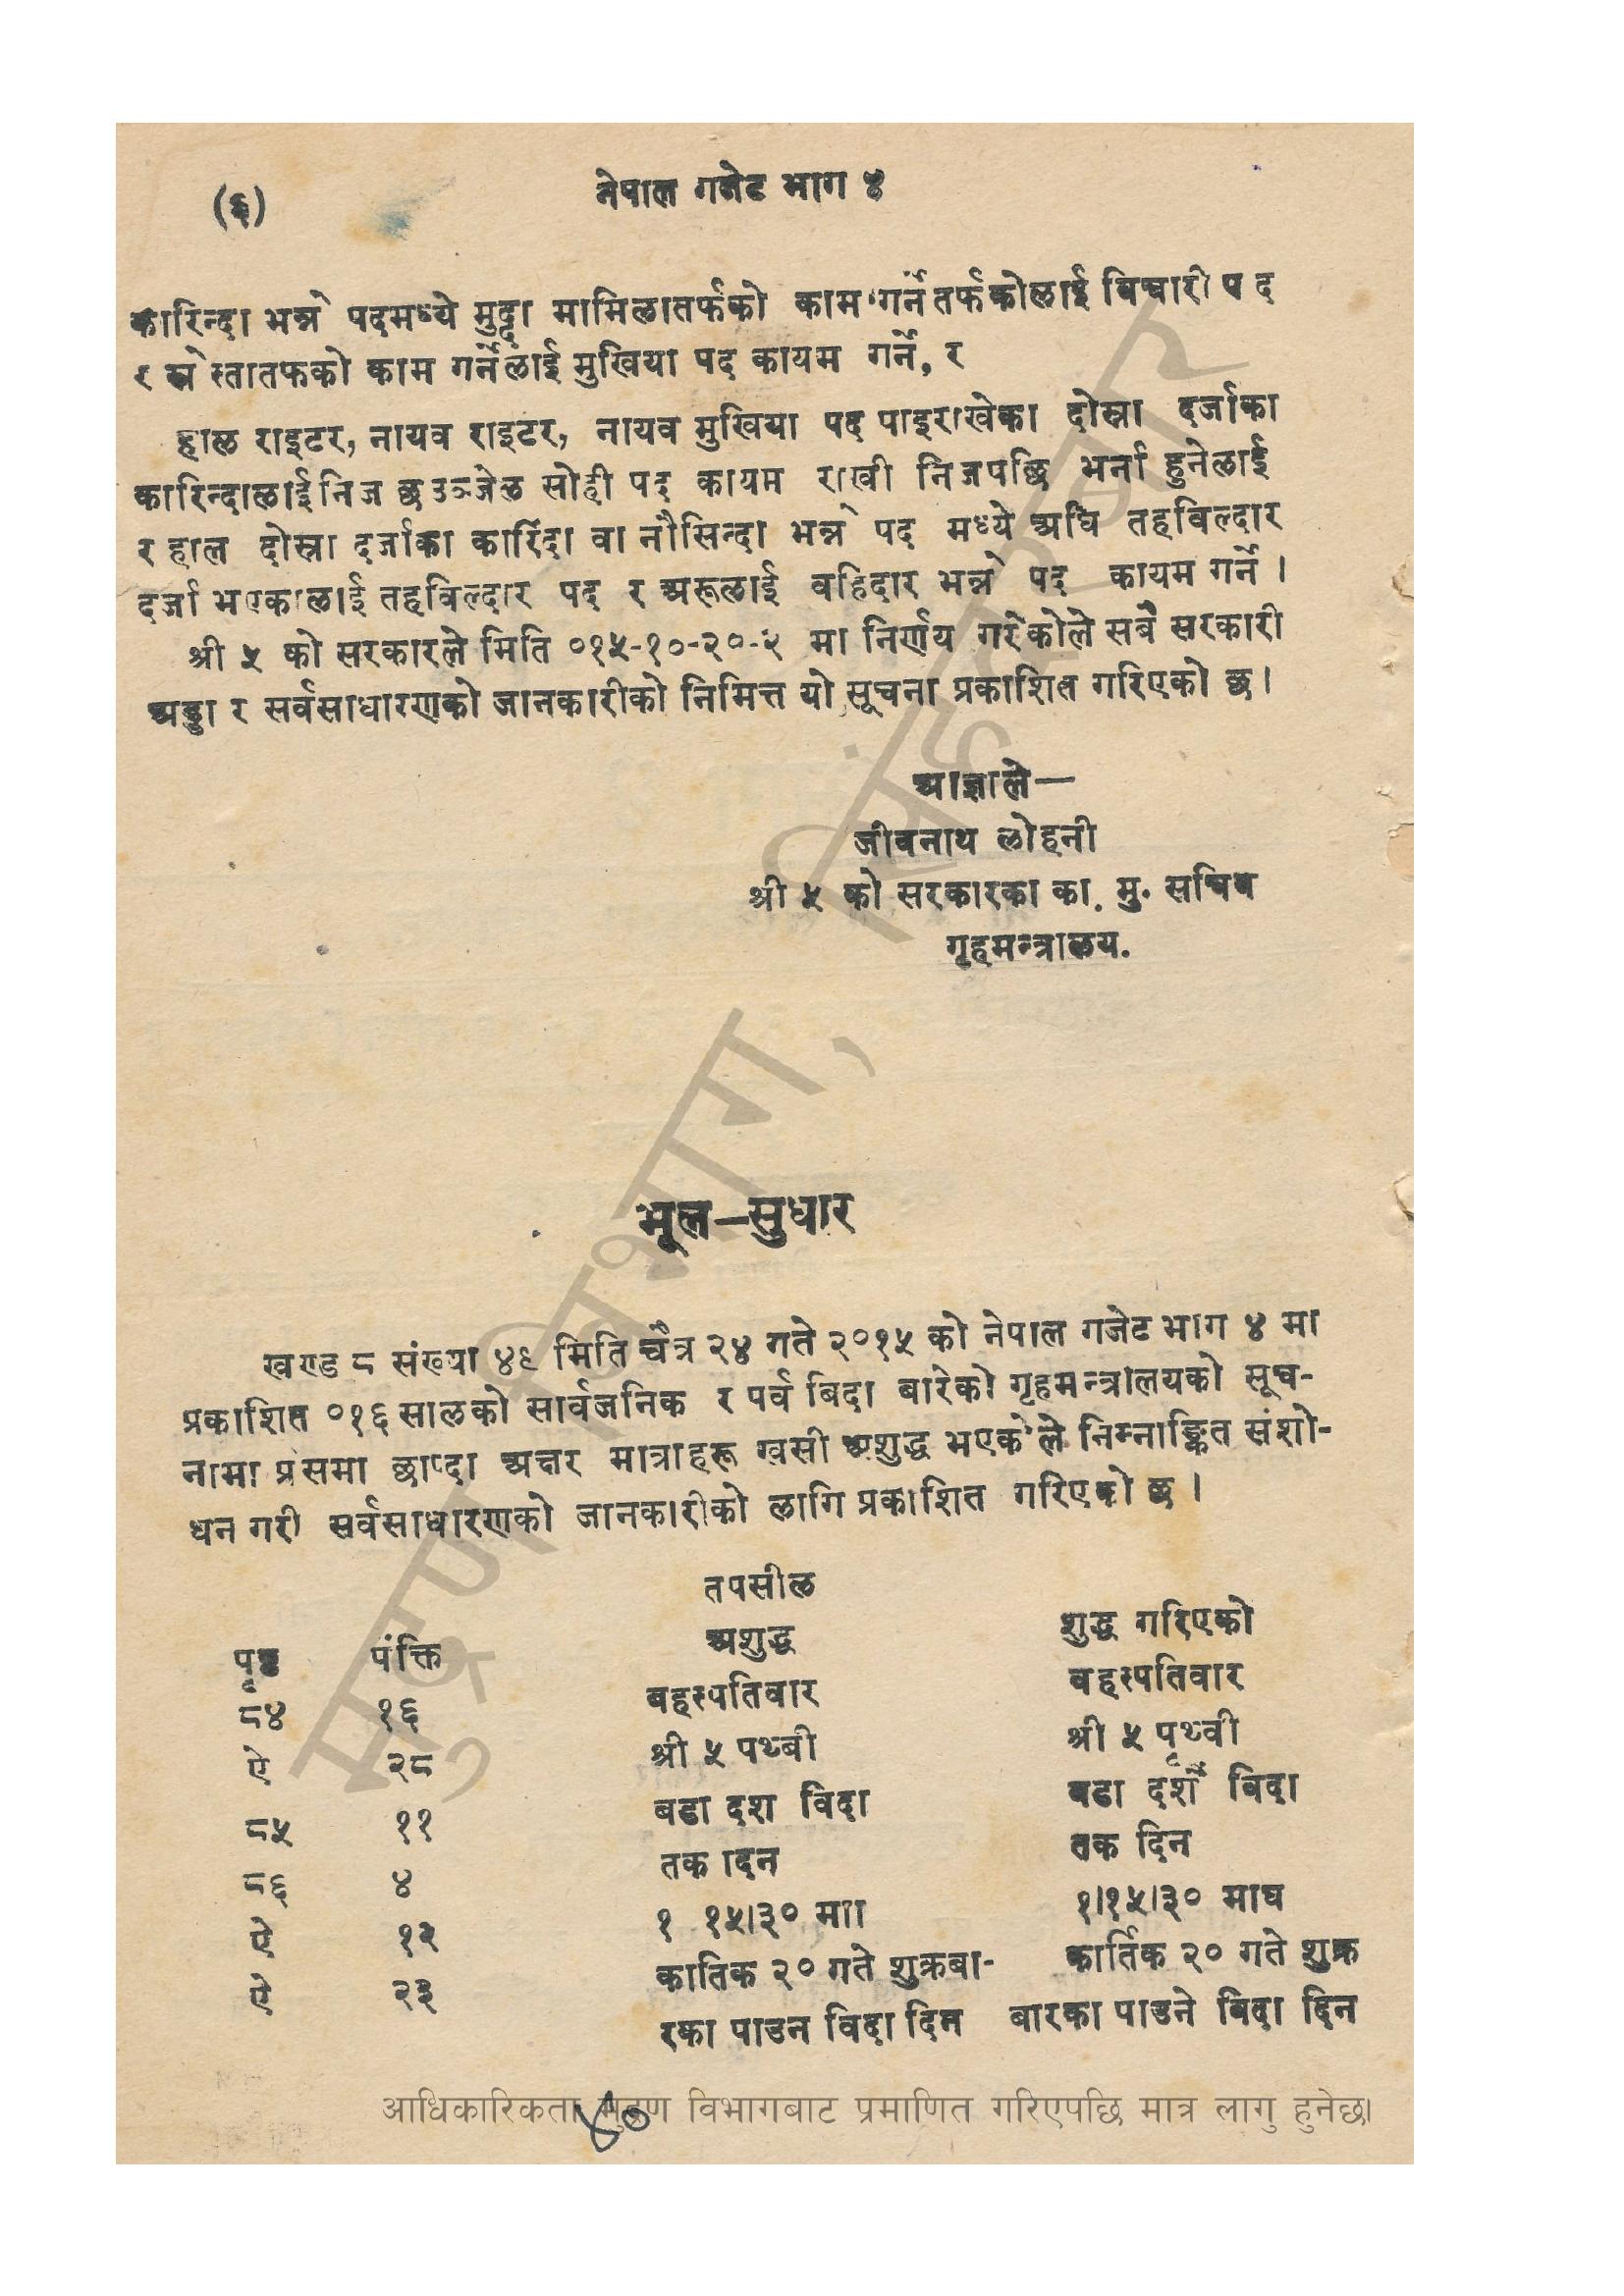 (६)
नेपाल गजेट भाग ४
कारिन्दा भन्ने पदमध्ये मुद्दा मामिलातर्फको काम गर्नेतर्फकोलाई बिचारी पद
र स्रेस्तातफको काम गर्नेलाई मुखिया पद कायम गर्ने, र
हाल राइटर, नायव राइटर, नायव मुखिया पद पाइराखेका दोस्रा दर्जाका
कारिन्दालाई निज छउञ्जेल सोही पद कायम राखी निजपछि भर्ना हुनेलाई
र हाल दोस्रा दर्जाका कारिंदा वा नौसिन्दा भन्ने पद मध्ये अघि तहविल्दार
दर्जा भएकालाई तहविल्दार पद र अरूलाई वहिदार भन्ने पद कायम गर्ने ।
श्री ५ को सरकारले मिति ०१५-१०-२०-२ मा निर्णय गरेकोले सबै सरकारी
अड्डा र सर्वसाधारणको जानकारीको निमित्त यो सूचना प्रकाशित गरिएको छ।
आज्ञाले—
जीवनाथ लोहनी
श्री ५ को सरकारका का. मु. सचिव
गृहमन्त्रालय.
भूल—सुधार
खण्ड ८ संख्या ४९ मिति चैत्र २४ गते २०१५ को नेपाल गजेट भाग ४ मा
प्रकाशित ०१६ सालको सार्वजनिक र पर्व बिदा बारेको गृहमन्त्रालयको सूच-
नामा प्रेसमा छाप्दा अक्षर मात्राहरू खसी अशुद्ध भएकोले निम्नाङ्कित संशो-
धन गरी सर्वसाधारणको जानकारीको लागि प्रकाशित गरिएको छ ।
तपसील
पृष्ठ पंक्ति अशुद्ध शुद्ध गरिएको
८४ १६ बहस्पतिवार बहस्पतिवार
ऐ २८ श्री ५ पथ्बी श्री ५ पृथ्वी
८५ ११ बडा दश विदा बडा दशैं विदा
८६ ४ तक ादन तक दिन
ऐ १२ १ १५।३० माा १।१५।३० माघ
ऐ २३ कातिक २० गते शुक्रबा- कार्तिक २० गते शुक्र
रका पाउन विदा दिन बारका पाउने बिदा दिन
मुद्रण विभाग, सिंहदरबार
आधिकारिकता मुद्रण विभागबाट प्रमाणित गरिएपछि मात्र लागु हुनेछ।
४०